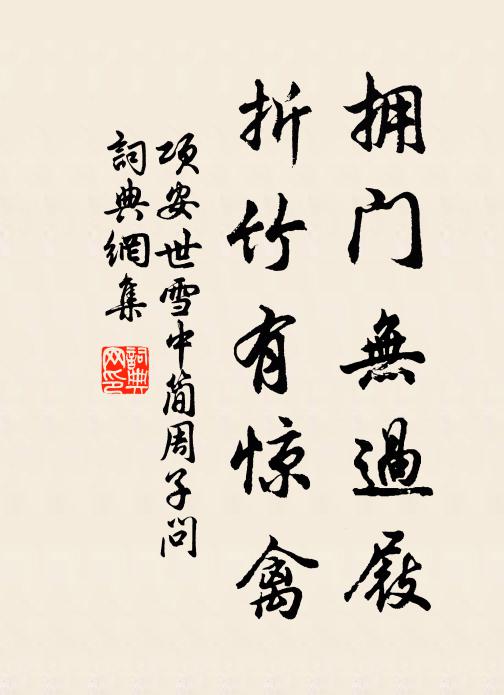 拥门無過屐
折竹有惊禽
项安世雪中简周子问
詞典網集
詞典网印